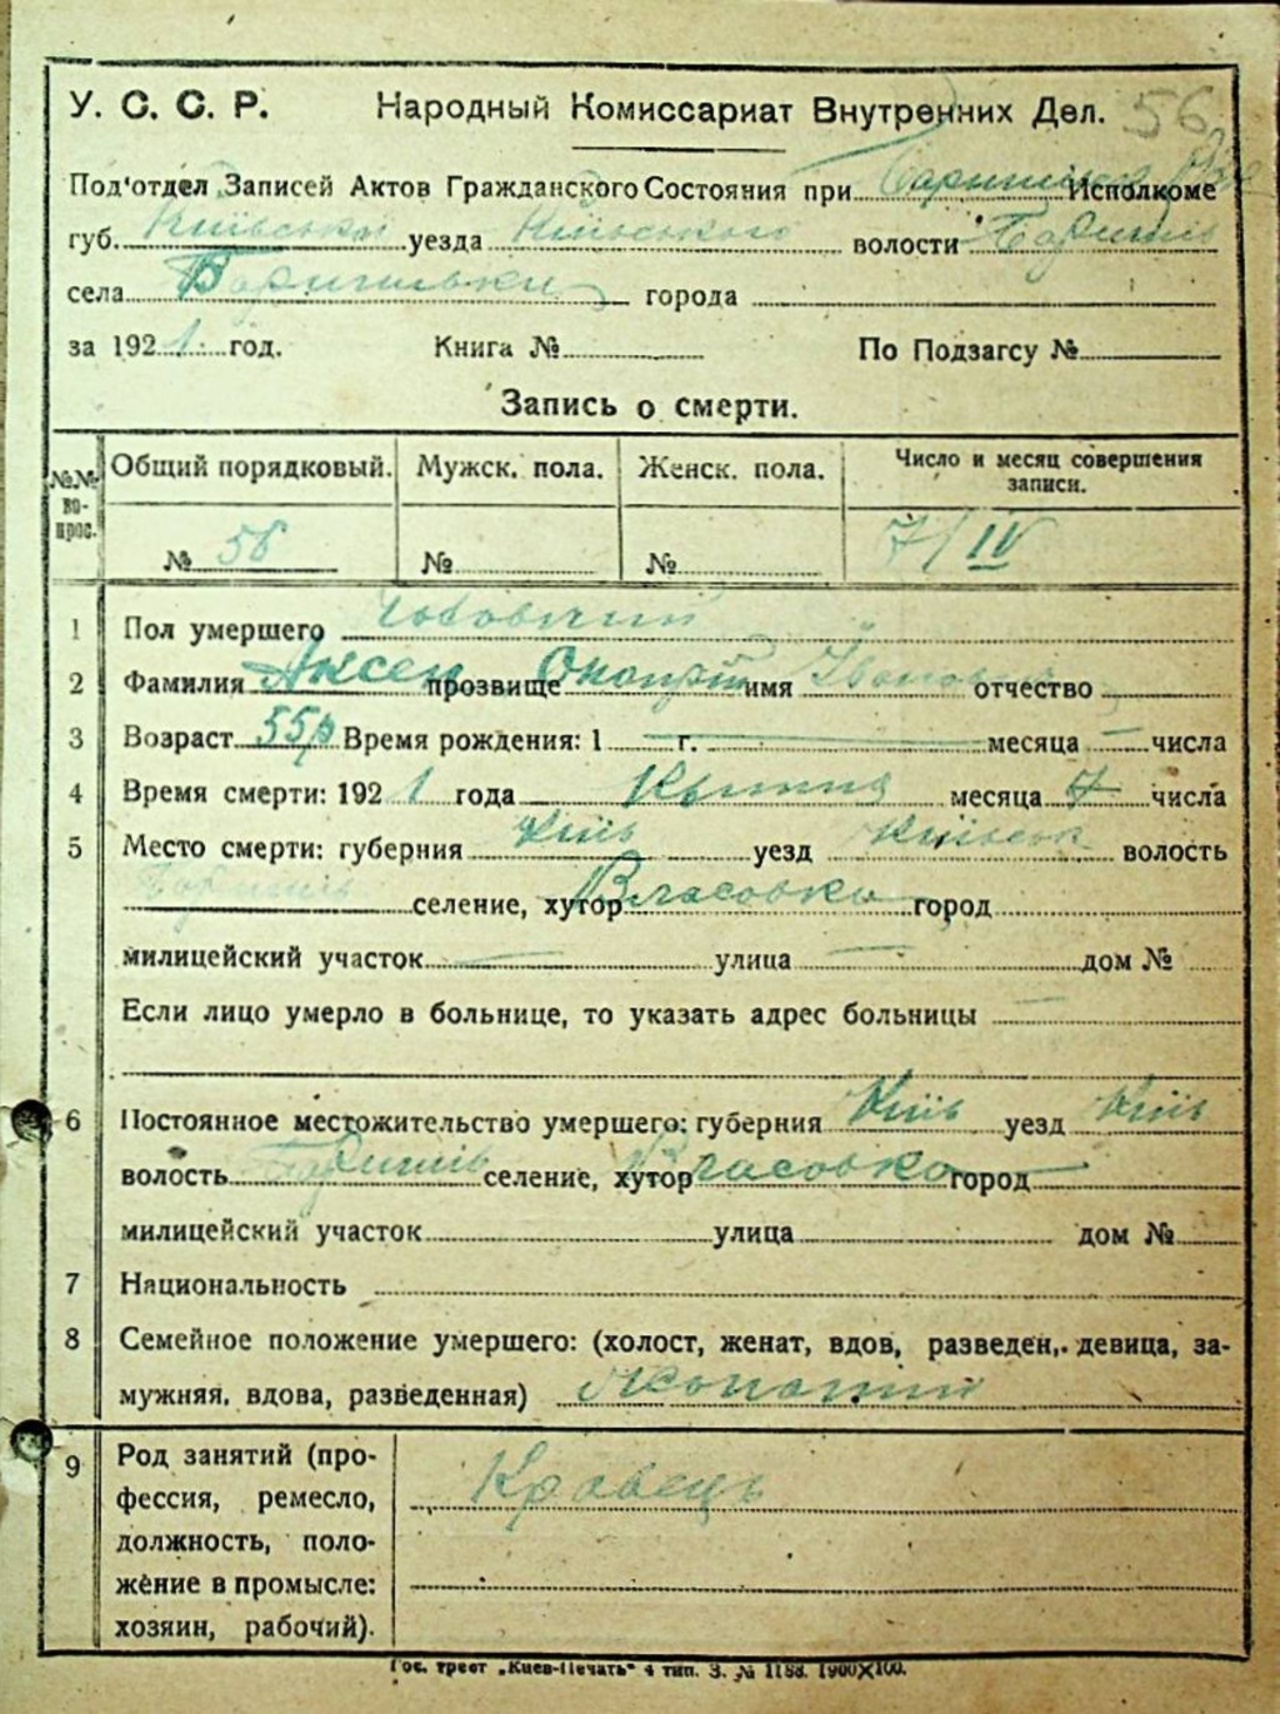 У. С. С. Р. Народный Комиссариат Внутренних Дел. 56
Под'отдел Записей Актов Гражданского Состояния при Исполкоме
губ. Київської уезда Київського волости Боришіль
села города
за 1921 год. Книга № По Подзагсу №
Запись о смерти.
№№ вопрос. Общий порядковый. Мужск. пола. Женск. пола. Число и месяц совершения записи.
№ 56 № № 7/IV
1 Пол умершего
2 Фамилия Аксен прозвище имя отчество
3 Возраст 55р Время рождения: 1 г. месяца числа
4 Время смерти: 1921 года Квітня месяца 7 числа
5 Место смерти: губерния Київ уезд Київськ волость
селение, хутор Власовка город
милицейский участок улица дом №
Если лицо умерло в больнице, то указать адрес больницы
6 Постоянное местожительство умершего: губерния Київ уезд Київ
волость селение, хутор Власовка город
милицейский участок улица дом №
7 Национальность
8 Семейное положение умершего: (холост, женат, вдов, разведен, девица, за-
мужняя, вдова, разведенная) Жонатий
9 Род занятий (про-
фессия, ремесло,
должность, поло-
жение в промысле:
хозяин, рабочий).
Кравець
Гос. трест „Киев-Печать" 4 тип. З. № 1188. 1900X100.